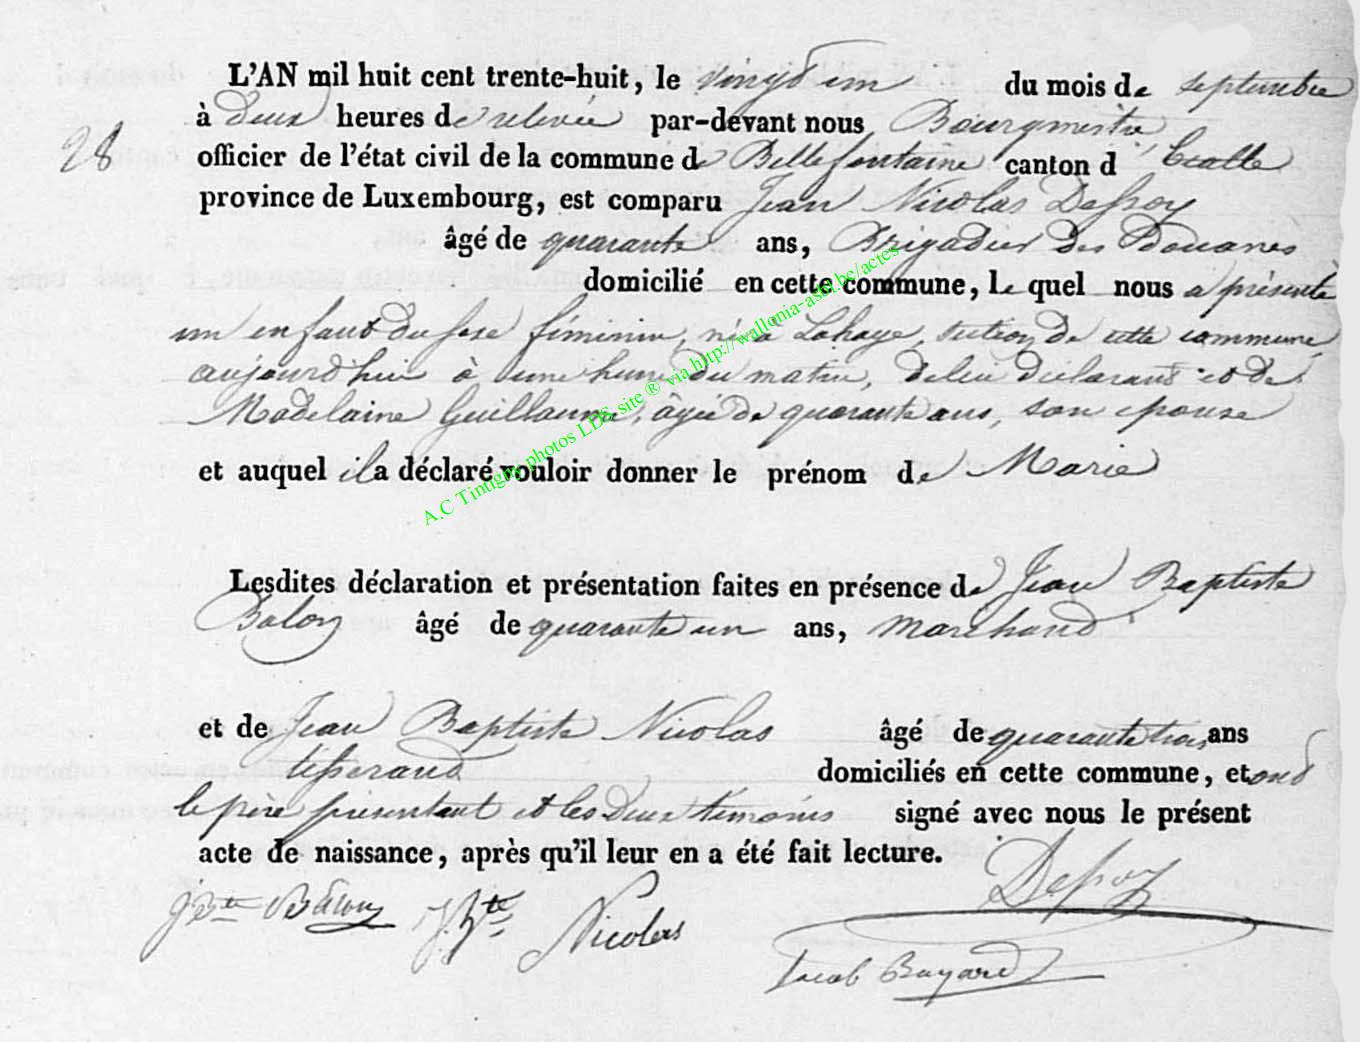 L'AN mil huit cent trente-huit, le vingt un du mois de septembre
28
à deux heures de relevée par-devant nous Bourgmestre
officier de l'état civil de la commune de Bellefontaine canton d'Etalle
province de Luxembourg, est comparu Jean Nicolas Defroy
âgé de quarante ans, Brigadier des Douanes
domicilié en cette commune, le quel nous a présenté
un enfant du sexe féminin, né à Lahage, section de cette commune,
aujourd'hui à une heure du matin, de lui déclarant et de
Madelaine Guillaume, âgée de quarante ans, son épouse
et auquel il a déclaré vouloir donner le prénom de Marie
A.C Tintigny photos LDS site ® via http://wallonia-asbl.be/actes
Lesdites déclaration et présentation faites en présence de Jean Baptiste
Balon âgé de quarante un ans, marchand
et de Jean Baptiste Nicolas âgé de quarante trois ans
tisserand domiciliés en cette commune, et ont
le père présentant et les deux témoins signé avec nous le présent
acte de naissance, après qu'il leur en a été fait lecture.
Defroy
JBte Balon J.Bte Nicolas
Jacob Bayard